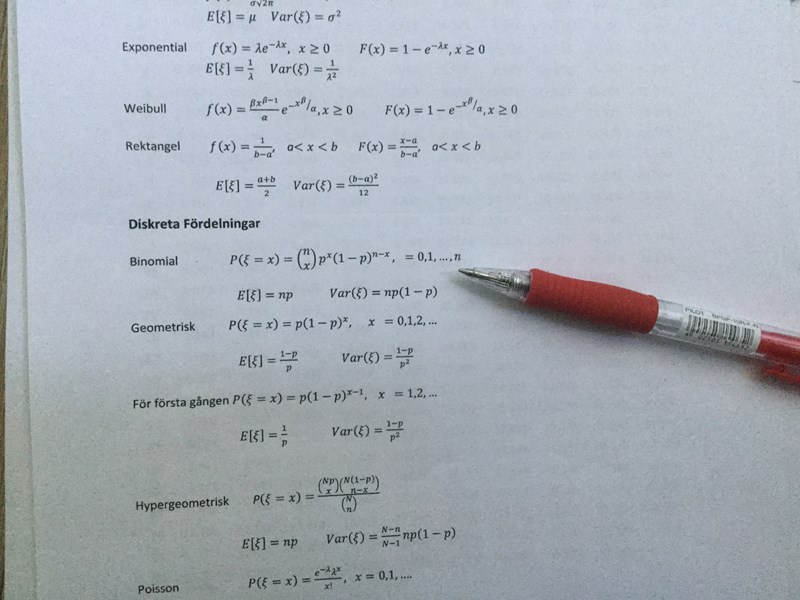 σ√2π
E[ξ] = μ Var(ξ) = σ²
Exponential f(x) = λe^{-λx}, x ≥ 0 F(x) = 1 − e^{-λx}, x ≥ 0
E[ξ] = 1/λ Var(ξ) = 1/λ²
Weibull f(x) = βx^{β−1}/α e^{−x^β/α}, x ≥ 0 F(x) = 1 − e^{−x^β/α}, x ≥ 0
Rektangel f(x) = 1/(b−a), a < x < b F(x) = (x−a)/(b−a), a < x < b
E[ξ] = (a+b)/2 Var(ξ) = (b−a)²/12
Diskreta Fördelningar
Binomial P(ξ = x) = (n x) p^x(1 − p)^{n−x}, = 0,1, ..., n
E[ξ] = np Var(ξ) = np(1 − p)
Geometrisk P(ξ = x) = p(1 − p)^x, x = 0,1,2, ...
E[ξ] = (1−p)/p Var(ξ) = (1−p)/p²
För första gången P(ξ = x) = p(1 − p)^{x−1}, x = 1,2, ...
E[ξ] = 1/p Var(ξ) = (1−p)/p²
Hypergeometrisk P(ξ = x) = (Np x)(N(1−p) n−x)/(N n)
E[ξ] = np Var(ξ) = (N−n)/(N−1) np(1 − p)
Poisson P(ξ = x) = e^{−λ}λ^x/x!, x = 0,1, ....
PILOT